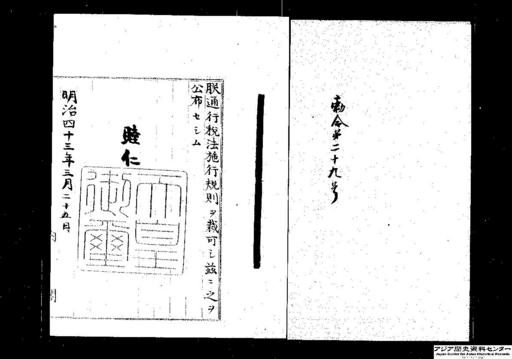 勅令第二十九号
朕通行税法施行規則ヲ裁可シ茲ニ之ヲ
公布セシム
睦仁
天皇御璽
明治四十三年三月二十五日
内閣
アジア歴史資料センター
Japan Center for Asian Historical Records